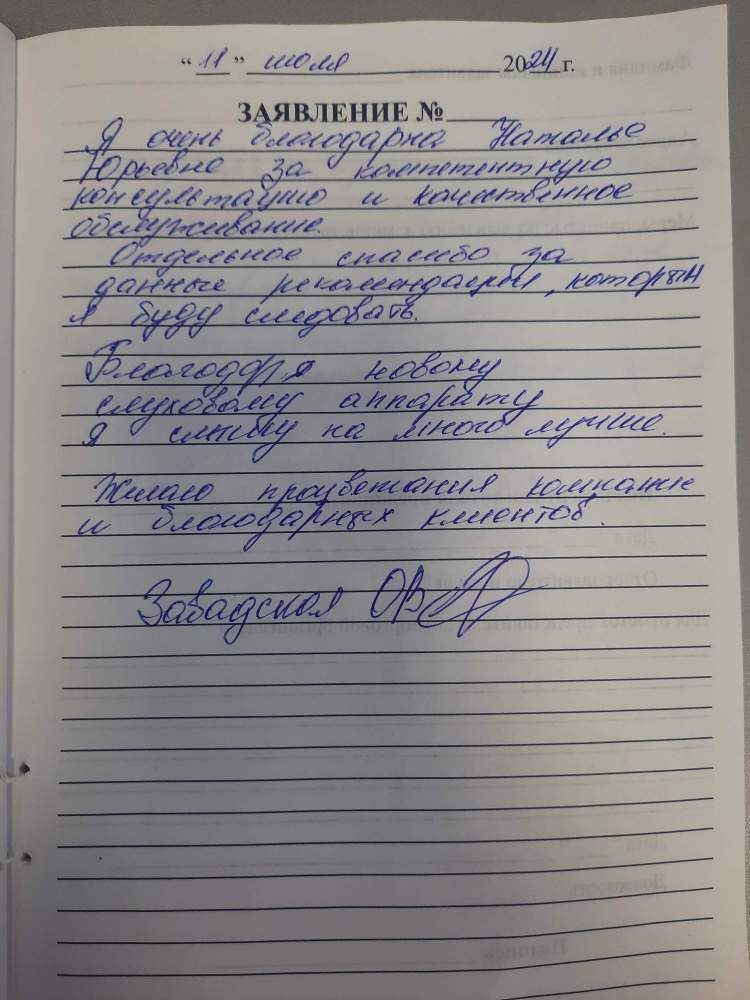 “ 11 ” июля 2024 г.
ЗАЯВЛЕНИЕ №
Я очень благодарна Наталье
Юрьевне за компетентную
консультацию и качественное
обслуживание.
Отдельное спасибо за
данные рекомендации, которым
я буду следовать.
Благодоря новому
слуховому аппарату
я слышу на много лучше.
Желаю процветания компании
и благодарных клиентов.
Завадская ОВ